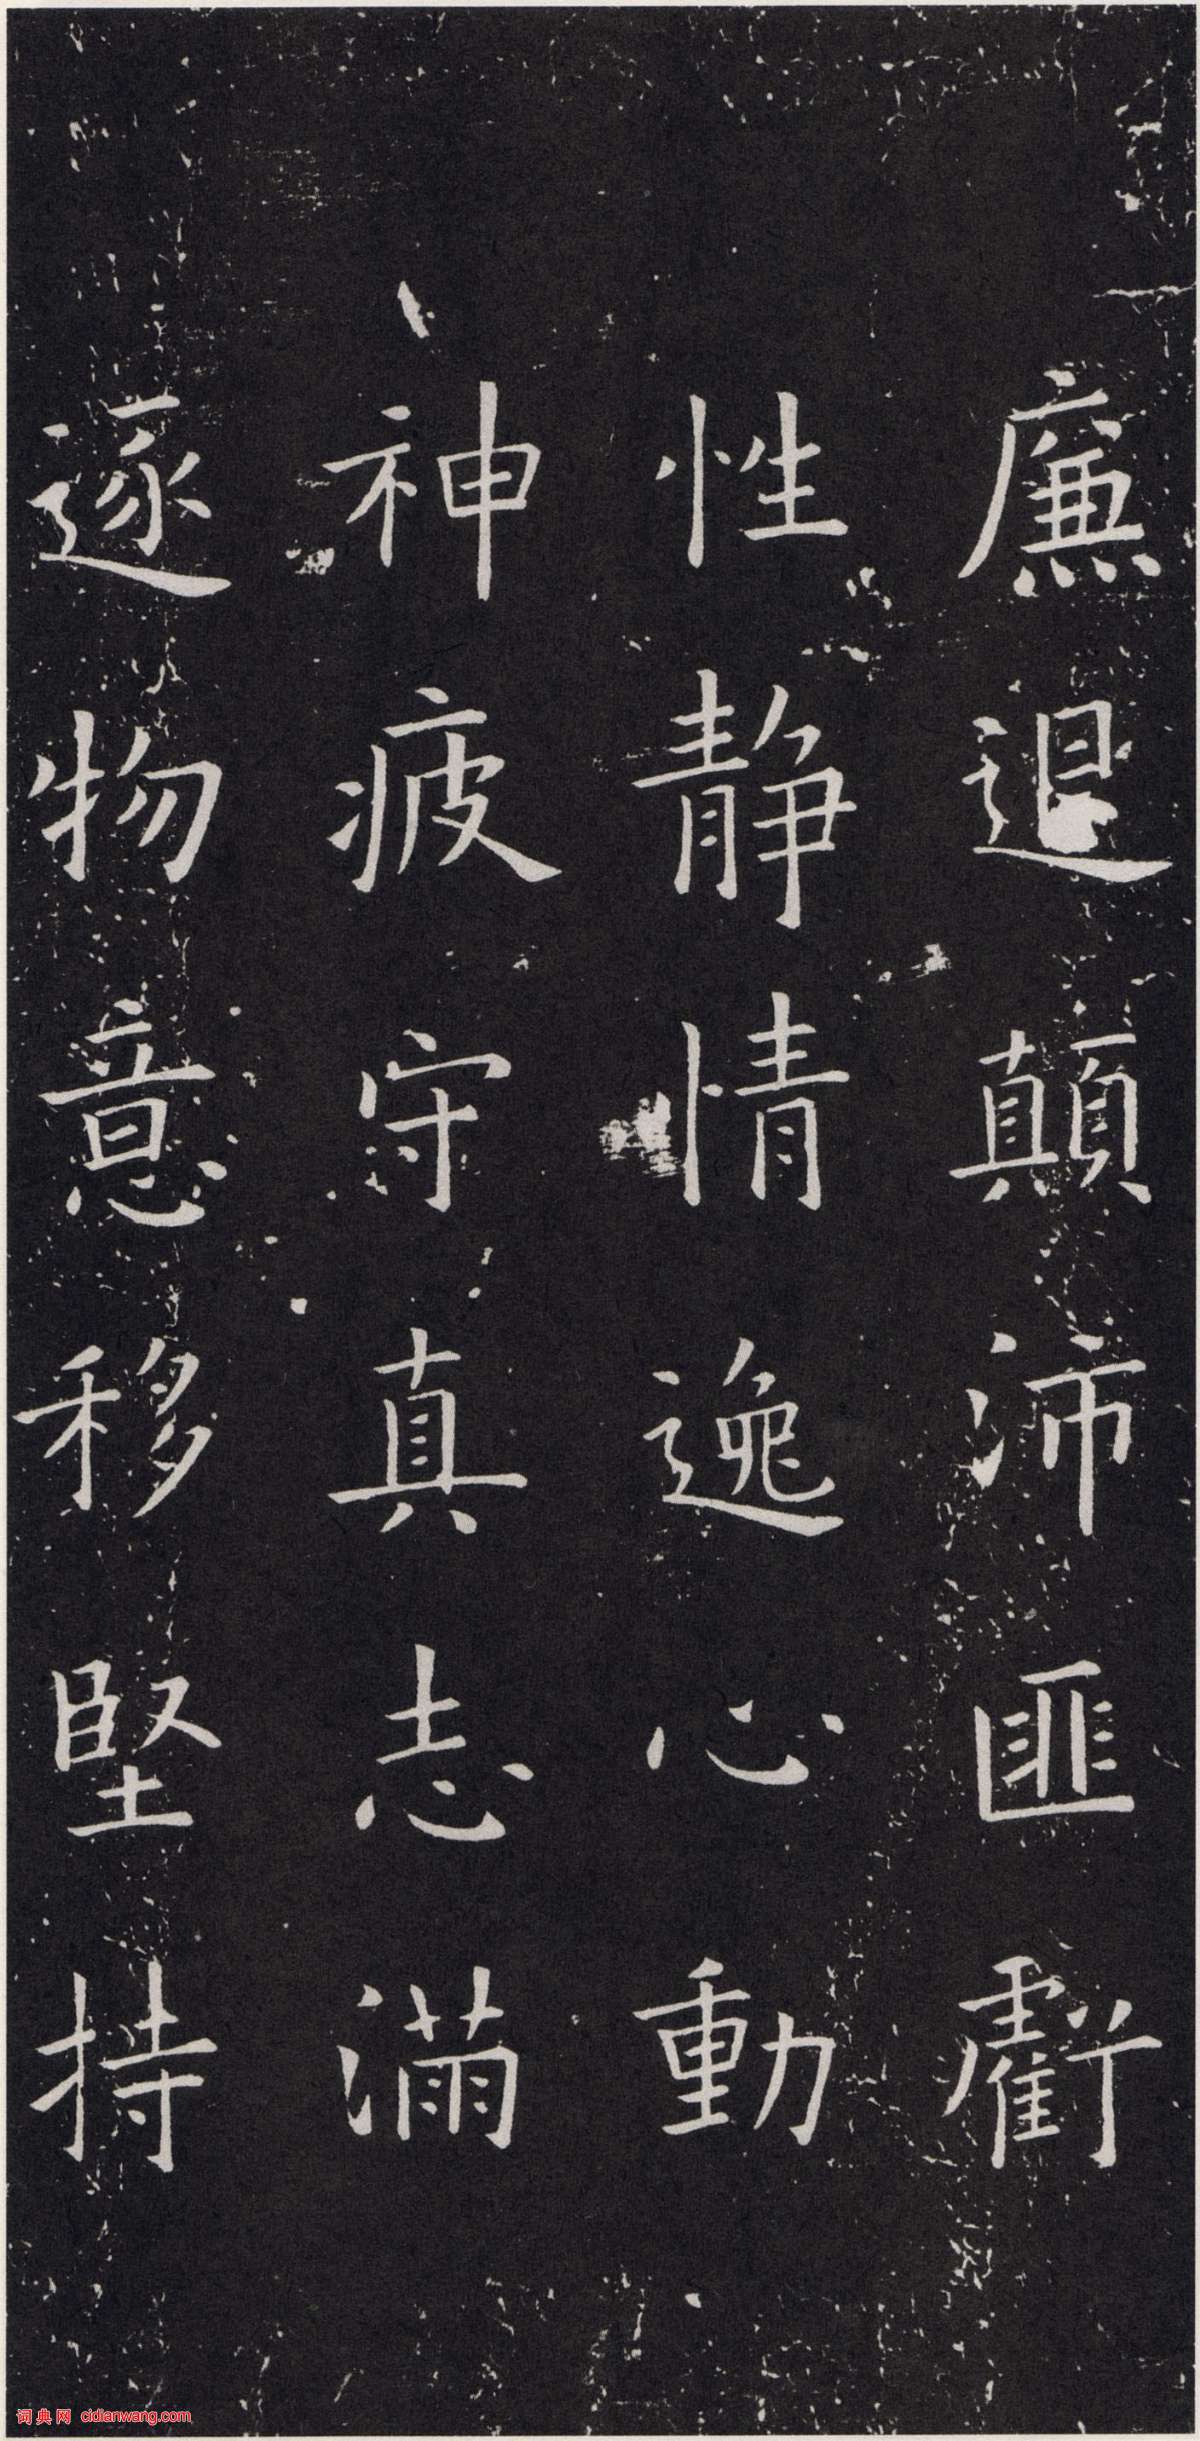 廉退顛沛匪虧
性靜情逸心動
神疲守真志滿
逐物意移堅持
词典网 cidianwang.com